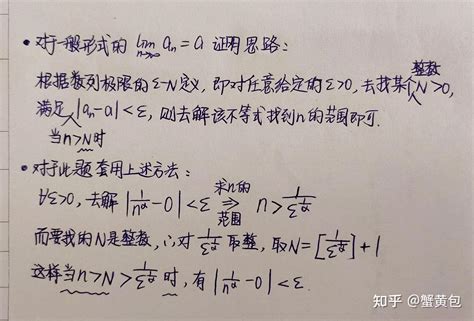 • 对于一般形式的 lim a_n = a 证明思路:
n→∞
根据数列极限的 ε-N定义, 即对任意给定的 ε>0, 去找某个整数N>0,
当n>N时满足 |a_n-a|<ε, 则去解该不等式找到n的范围即可.
• 对于此题套用上述方法:
∀ε>0, 去解 |1/n^α - 0| < ε ⇒ 求n的范围 n > 1/ε^(1/α)
而要找的N是整数, ∴对 1/ε^(1/α) 取整, 取N=[1/ε^(1/α)]+1
这样当 n>N>1/ε^(1/α) 时, 有 |1/n^α - 0| < ε.
知乎 @蟹黄包